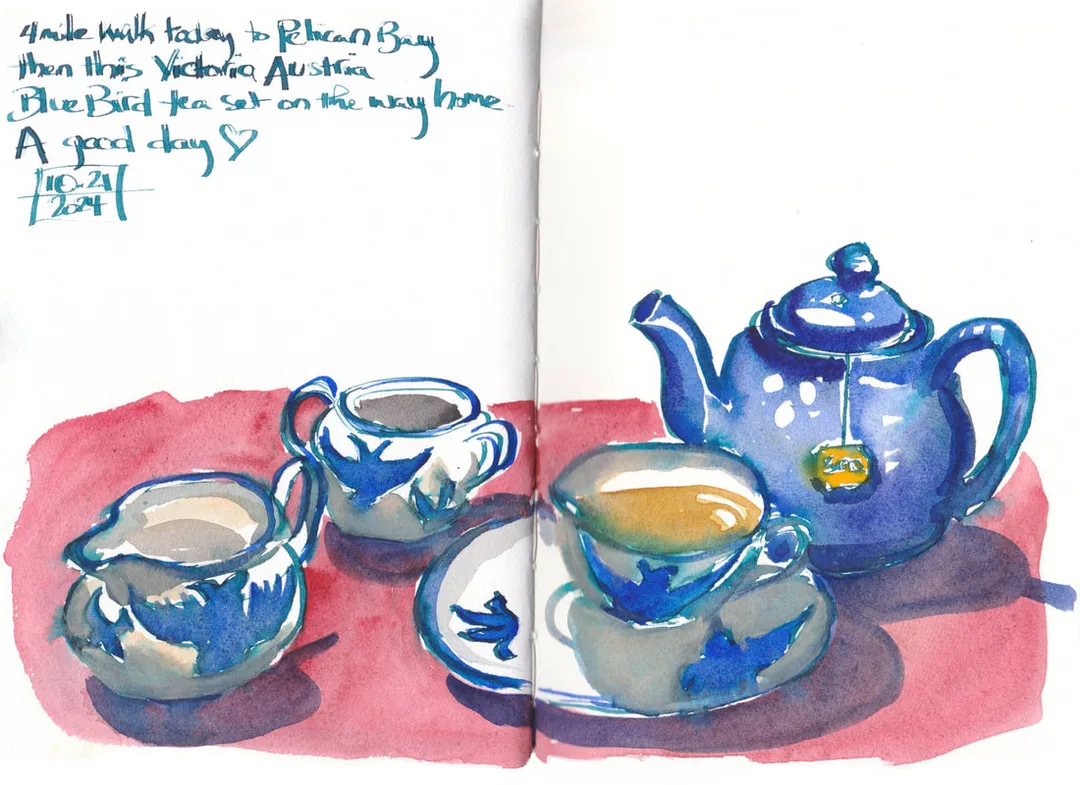 4 mile walk today to Pelican Bay
then this Victoria Austria
Blue Bird tea set on the way home
A good day ♡
10-21
2024